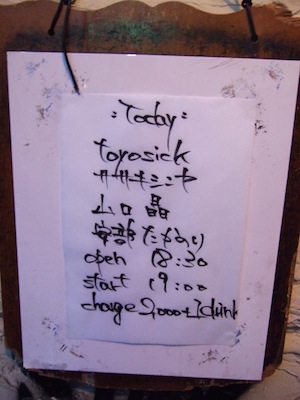 :Today:
toyosick
ササキシンヤ
山口 晶
安部 たかのり
open 18:30
start 19:00
charge 2,000+1drink